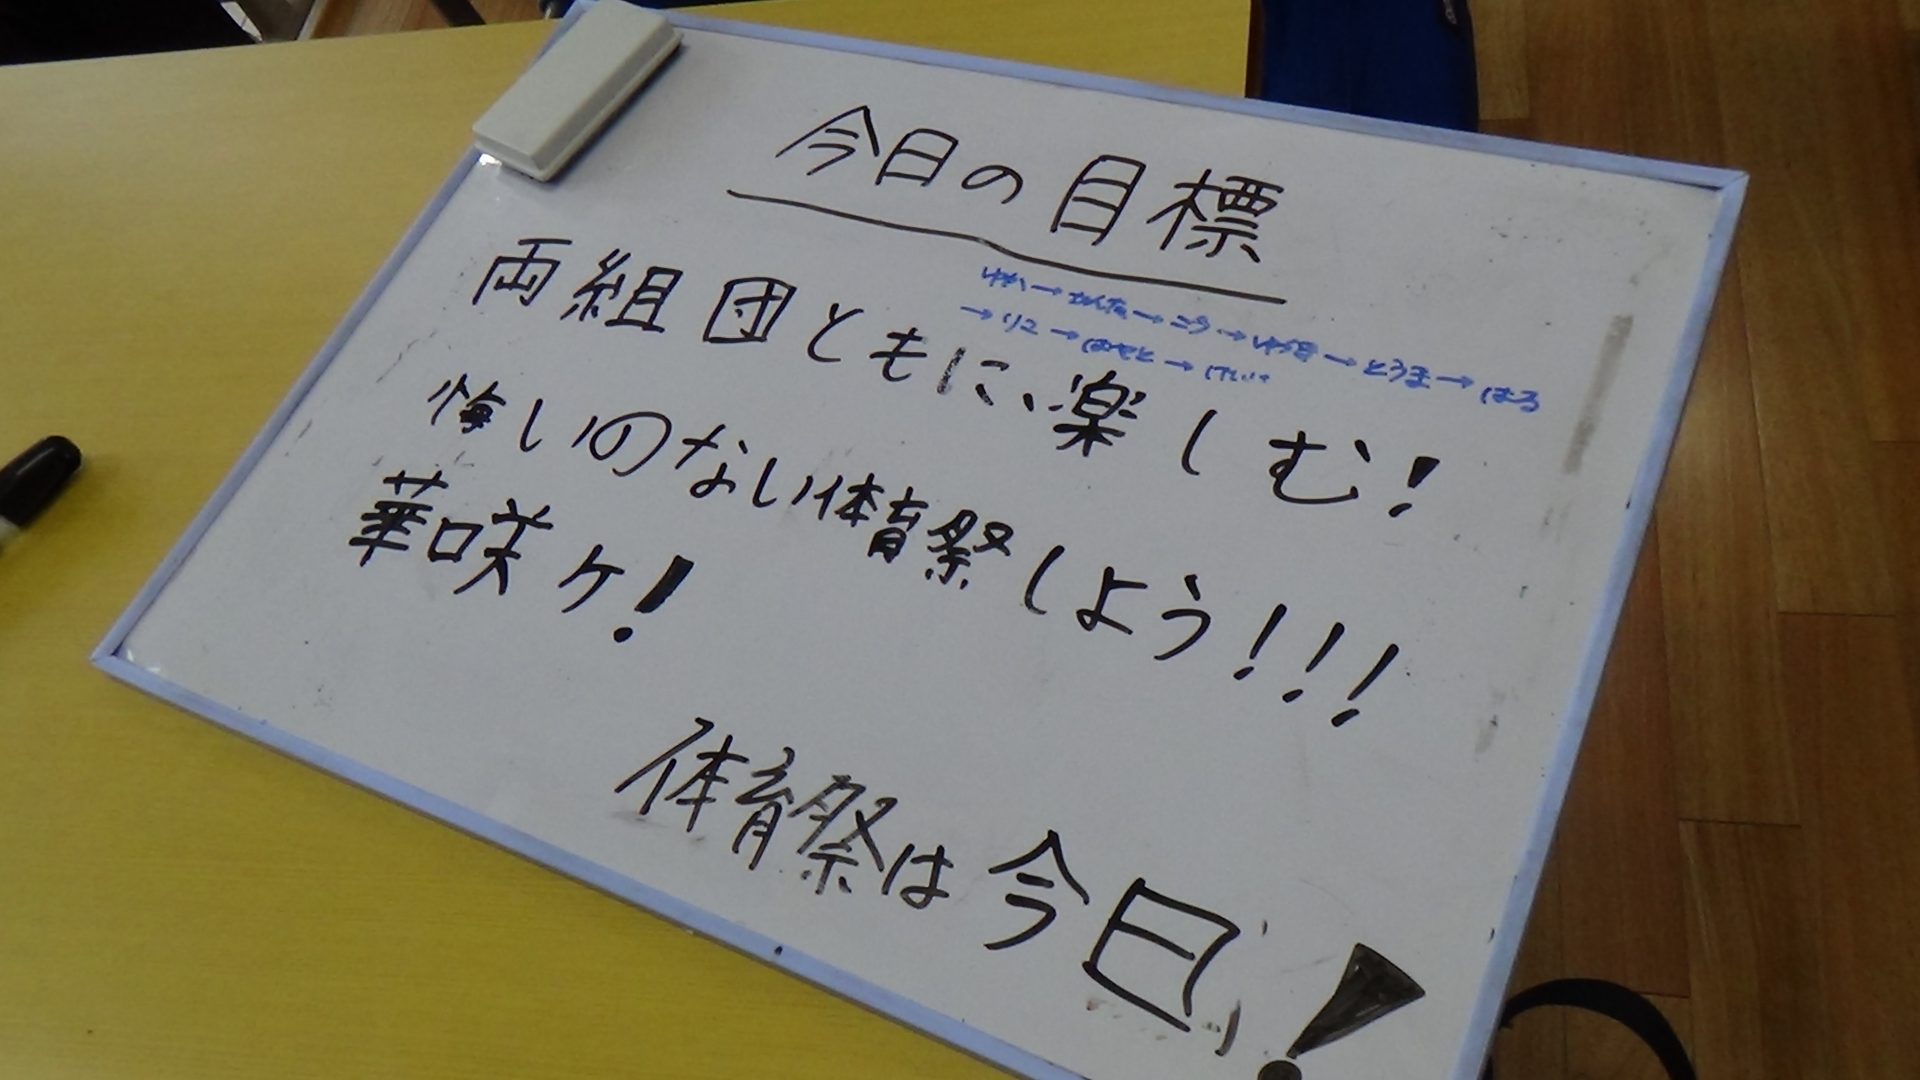 今日の目標
ゆかい→かんな→こう→ゆうき→とうま→はる
→りこ→はやと→けいと
両組団ともに、楽しむ!
悔いのない体育祭しよう!!!
華咲ケ!
体育祭は今日!